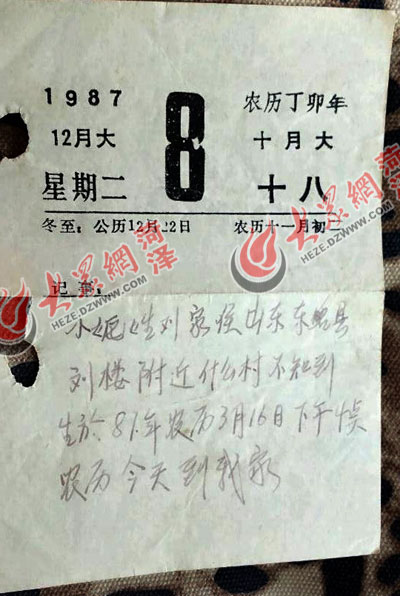 1987
12月大
星期二
8
农历丁卯年
十月大
十八
冬至：公历12月22日
农历十一月初二
记事：
小妮姓刘家侯山东东明县
刘楼附近什么村不知到
生於81年农历3月16日下午
农历今天到我家
大众網 菏泽
HEZE.DZWWW.COM
大众網 菏泽
HEZE.DZWWW.COM
大众網 菏泽
HEZE.DZWWW.COM